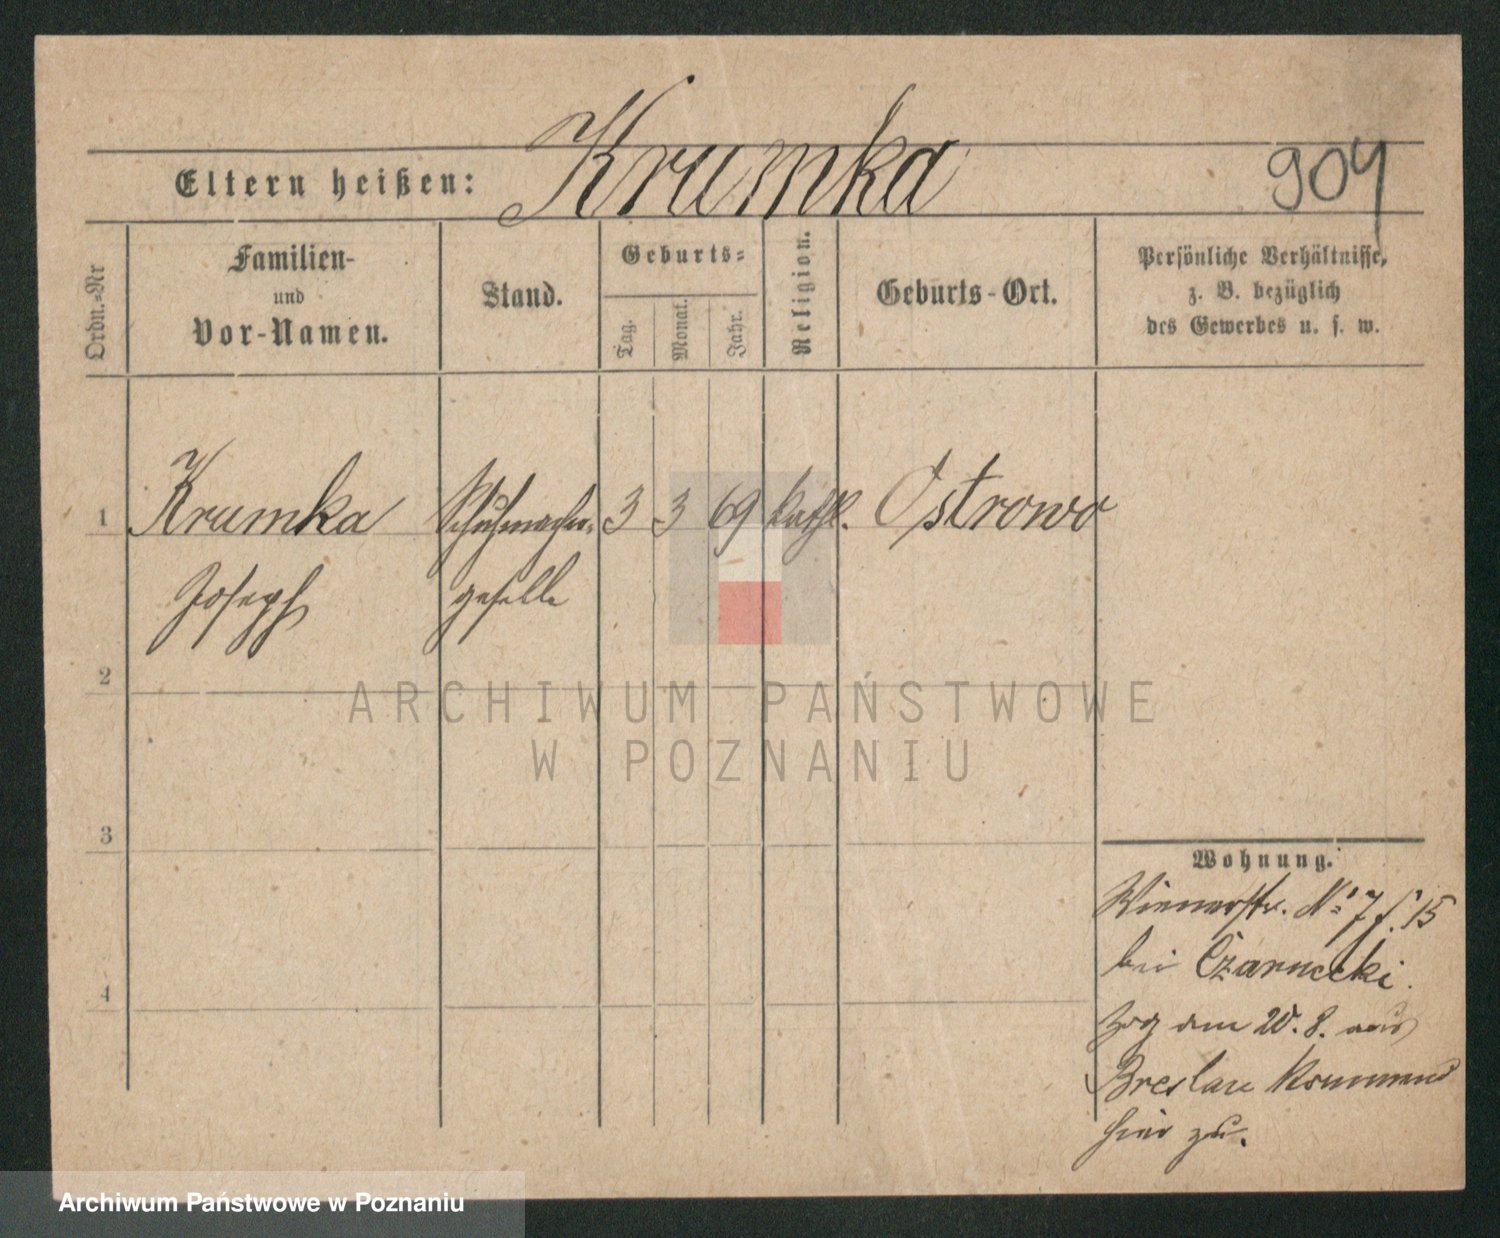 Krumka
904
Eltern heißen:
Ordn.-Nr
Familien-
und
Vor-Namen.
Stand.
Geburts-
Tag.
Monat.
Jahr.
Religion.
Geburts-Ort.
Persönliche Verhältnisse,
z. B. bezüglich
des Gewerbes u. s. w.
1 Krumka Schuhmacher- 3 3 69 kath. Ostrowo
Joseph geselle
2
3
4
Wohnung.
Wienerstr. No 7 f. 15
bei Czarnecki.
zog am 20. 8. aus
Breslau kommend
hier zu.
ARCHIWUM PAŃSTWOWE
W POZNANIU
Archiwum Państwowe w Poznaniu